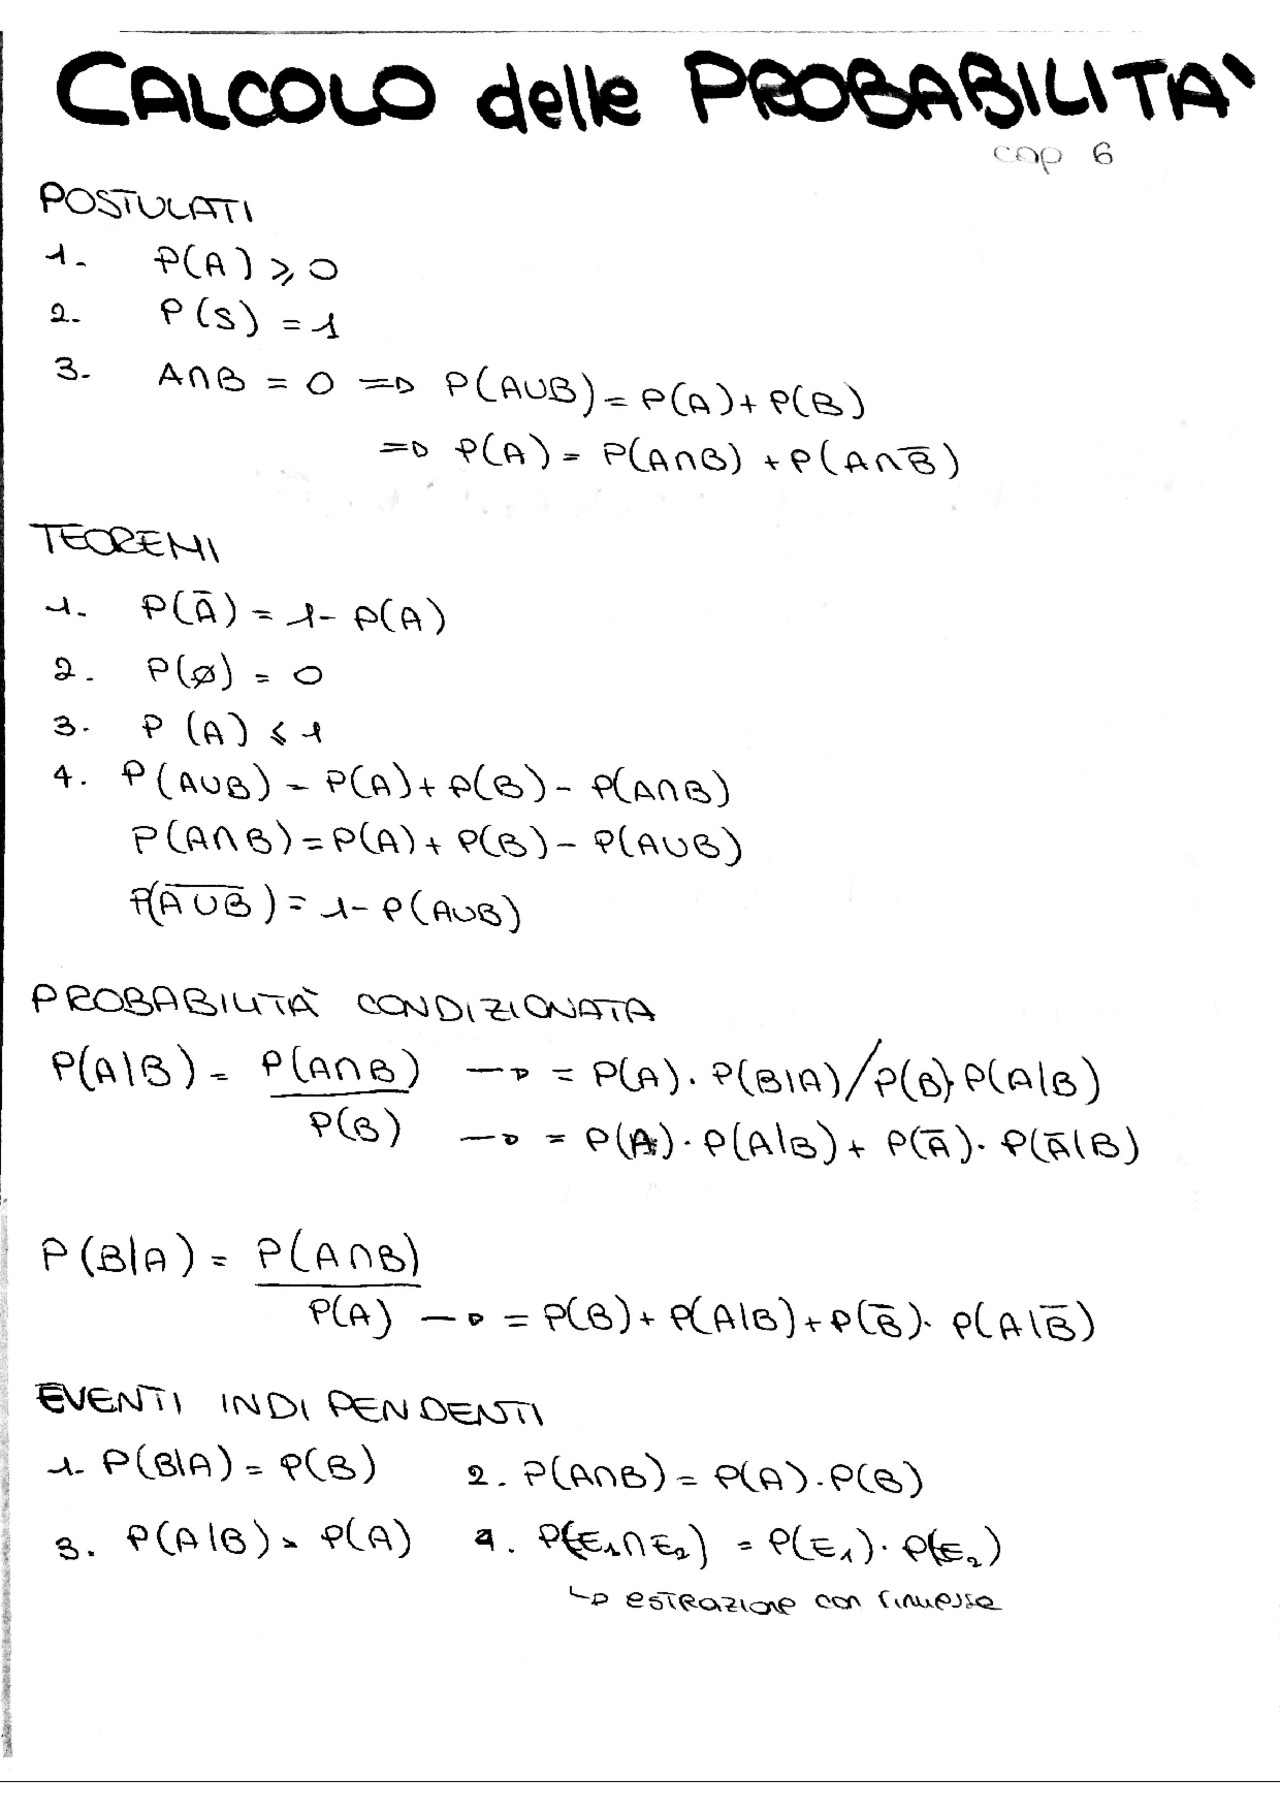 CALCOLO delle PROBABILITA'
cap 6
POSTULATI
1. P(A) ⩾ 0
2. P(S) = 1
3. A∩B = 0 => P(A∪B) = P(A) + P(B)
=> P(A) = P(A∩B) + P(A∩B̅)
TEOREMI
1. P(A̅) = 1 - P(A)
2. P(ø) = 0
3. P(A) ⩽ 1
4. P(A∪B) = P(A) + P(B) - P(A∩B)
P(A∩B) = P(A) + P(B) - P(A∪B)
P(A̅∪̅B̅) = 1 - P(A∪B)
PROBABILITÀ CONDIZIONATA
P(A|B) = P(A∩B) → = P(A) · P(B|A) / P(B) · P(A|B)
P(B) → = P(A) · P(A|B) + P(A̅) · P(A̅|B)
P(B|A) = P(A∩B)
P(A) → = P(B) + P(A|B) + P(B̅) · P(A|B̅)
EVENTI INDIPENDENTI
1. P(B|A) = P(B) 2. P(A∩B) = P(A) · P(B)
3. P(A|B) = P(A) 4. P(E₁∩E₂) = P(E₁) · P(E₂)
↳ estrazione con rimessa